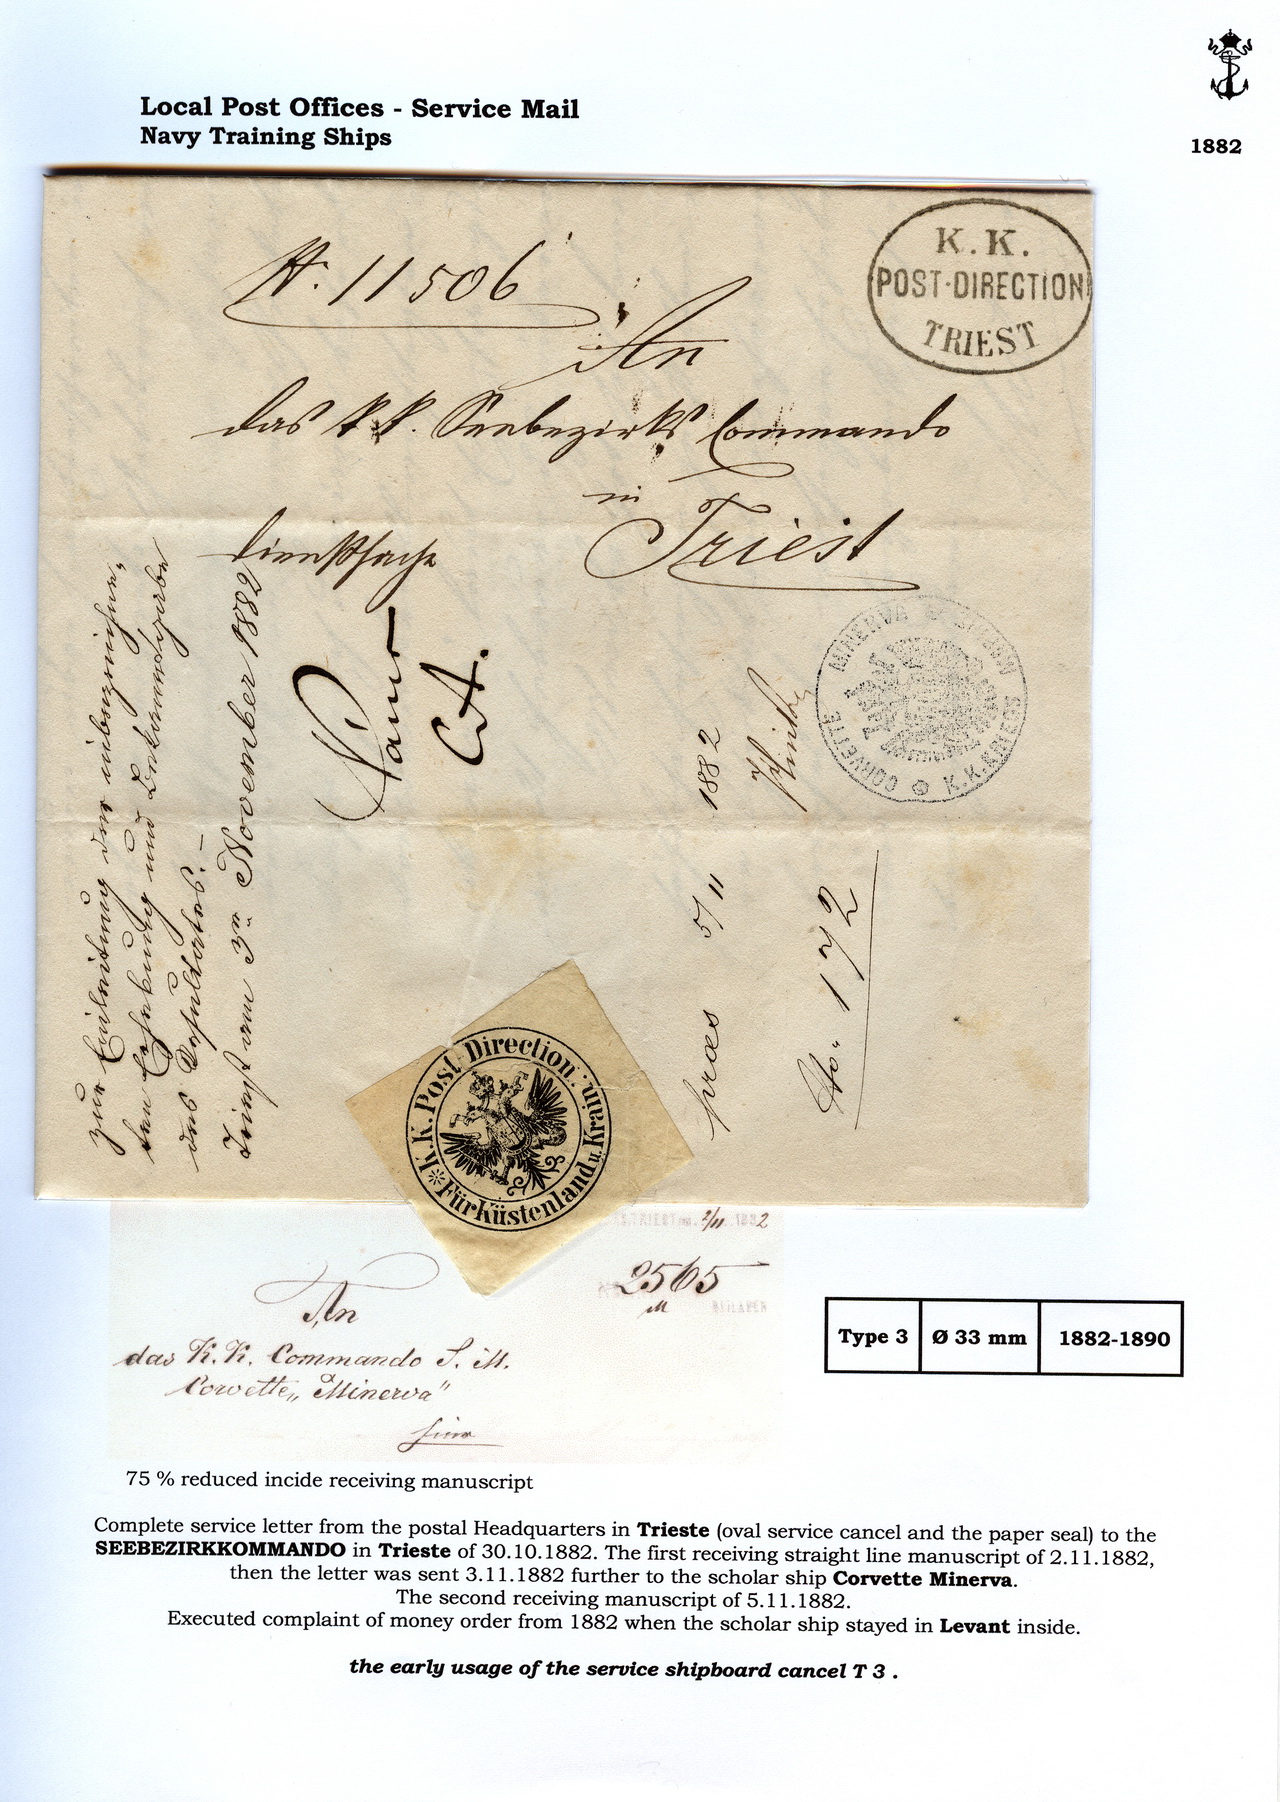 Local Post Offices - Service Mail
Navy Training Ships
1882
N. 11506
K. K.
POST-DIRECTION
TRIEST
An
das k.k. Seebezirks Commando
in
Triest
Dienstsache
zur Einleitung der
und
des Resultates. –
Triest am 3ten November 1882
CORVETTE MINERVA
K.K. KRIEGS
praes 5/11 1882
No. 172
K.K. Post-Direction
Für Küstenland u. Krain
TRIEST 2/11 1882
2565
BEILAGEN
An
das K. K. Commando S. M.
Corvette „Minerva“
hier
Type 3 Ø 33 mm 1882-1890
75 % reduced incide receiving manuscript
Complete service letter from the postal Headquarters in Trieste (oval service cancel and the paper seal) to the
SEEBEZIRKKOMMANDO in Trieste of 30.10.1882. The first receiving straight line manuscript of 2.11.1882,
then the letter was sent 3.11.1882 further to the scholar ship Corvette Minerva.
The second receiving manuscript of 5.11.1882.
Executed complaint of money order from 1882 when the scholar ship stayed in Levant inside.
the early usage of the service shipboard cancel T 3 .